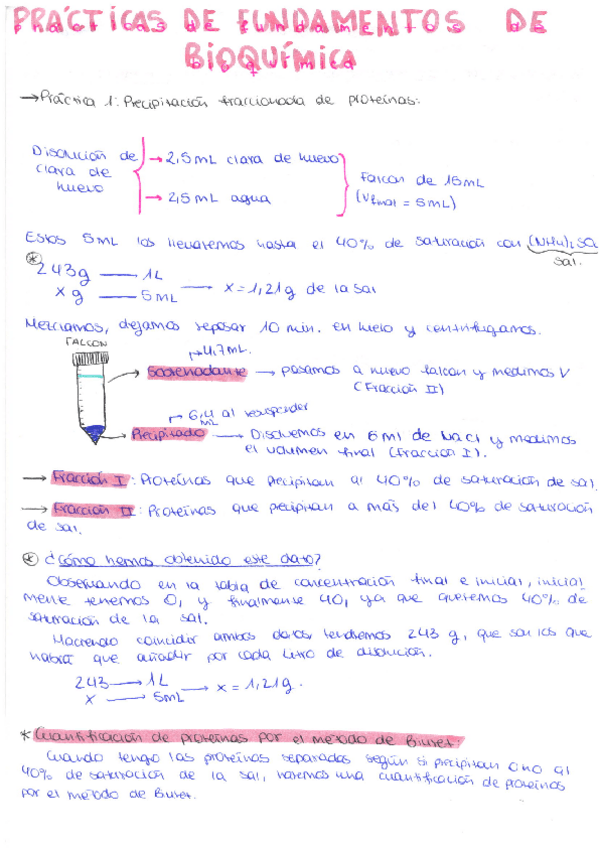 PRÁCTICAS DE FUNDAMENTOS DE
BIOQUÍMICA
→Práctica 1: Precipitación fraccionada de proteínas:
Disolución de
clara de
huevo
→ 2,5 mL clara de huevo
→ 2,5 mL agua
Falcon de 15mL
(Vfinal = 5mL)
Estos 5mL los llevaremos hasta el 40% de saturación con (NH4)2SO
sal.
* 243g —— 1L
x g —— 5mL → x = 1,21g de la sal
Mezclamos, dejamos reposar 10 min. en hielo y centrifugamos.
FALCON
→4,7mL.
Sobrenadante → pasamos a nuevo falcon y medimos V
(Fracción II)
→ 6,4 al resuspender
mL
Precipitado → Disolvemos en 6ml de NaCl y medimos
el volumen final (Fracción I).
→ Fracción I: Proteínas que precipitan al 40% de saturación de sal.
→ Fracción II: Proteínas que precipitan a más del 40% de saturación
de sal.
* ¿Cómo hemos obtenido este dato?
Observando en la tabla de concentración final e inicial, inicial
mente tenemos 0, y finalmente 40, ya que queremos 40% de
saturación de la sal.
Haciendo coincidir ambos datos tendremos 243 g, que son los que
habría que añadir por cada litro de disolución.
243 → 1L
x → 5mL → x = 1,21g.
* Cuantificación de proteínas por el método de Biuret:
Cuando tengo las proteínas separadas según si precipitan o no al
40% de saturación de la sal, haremos una cuantificación de proteínas
por el método de Biuret.